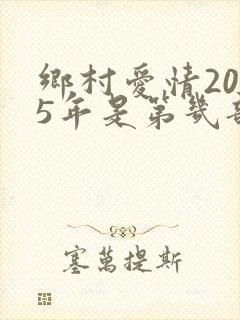 鄉村愛情20
5年是第幾
塞萬提斯